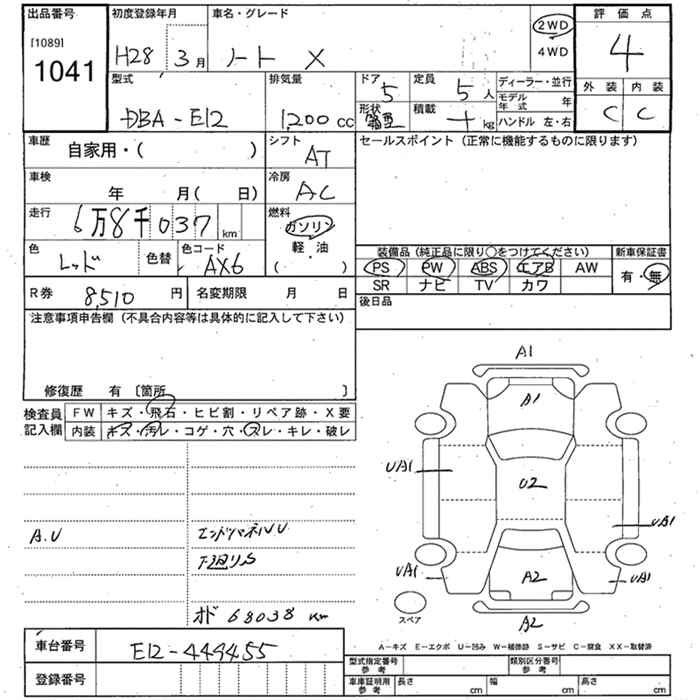 出品番号 初度登録年月 車名・グレード 2WD 4WD 評価点
[1089]
1041
H28 3月 ノート X
4
型式 排気量 ドア 定員 ディーラー・並行 外装 内装
DBA-E12 1,200cc 5 5人 モデル年式 年 C C
形状 積載 kg ハンドル 左・右
車歴 自家用・( ) シフト AT セールスポイント(正常に機能するものに限ります)
車検 年 月( 日) 冷房 AC
走行 6万8千037 km 燃料 ガソリン 軽・油 ( )
色 レッド 色替 色コード AX6
装備品(純正品に限り○をつけてください) 新車保証書
PS PW ABS エアB AW 有・無
SR ナビ TV カワ
R券 8,510円 名変期限 月 日 後日品
注意事項申告欄(不具合内容等は具体的に記入して下さい)
修復歴 有 〔箇所 〕
検査員記入欄 FW キズ・飛石・ヒビ割・リペア跡・X要
内装 キズ・汚レ・コゲ・穴・スレ・キレ・破レ
A1
A1
UA1
U2
UA1
A.U エンドパネルU
下廻りS
UA1
A2
UA1
オド 68038 km
スペア
A2
A-キズ E-エクボ U-凹み W-補修跡 S-サビ C-腐食 XX-取替済
車台番号 E12-444455
登録番号
型式指定番号 参考 類別区分番号 参考
車庫証明用 参考 長さ cm 幅 cm 高さ cm